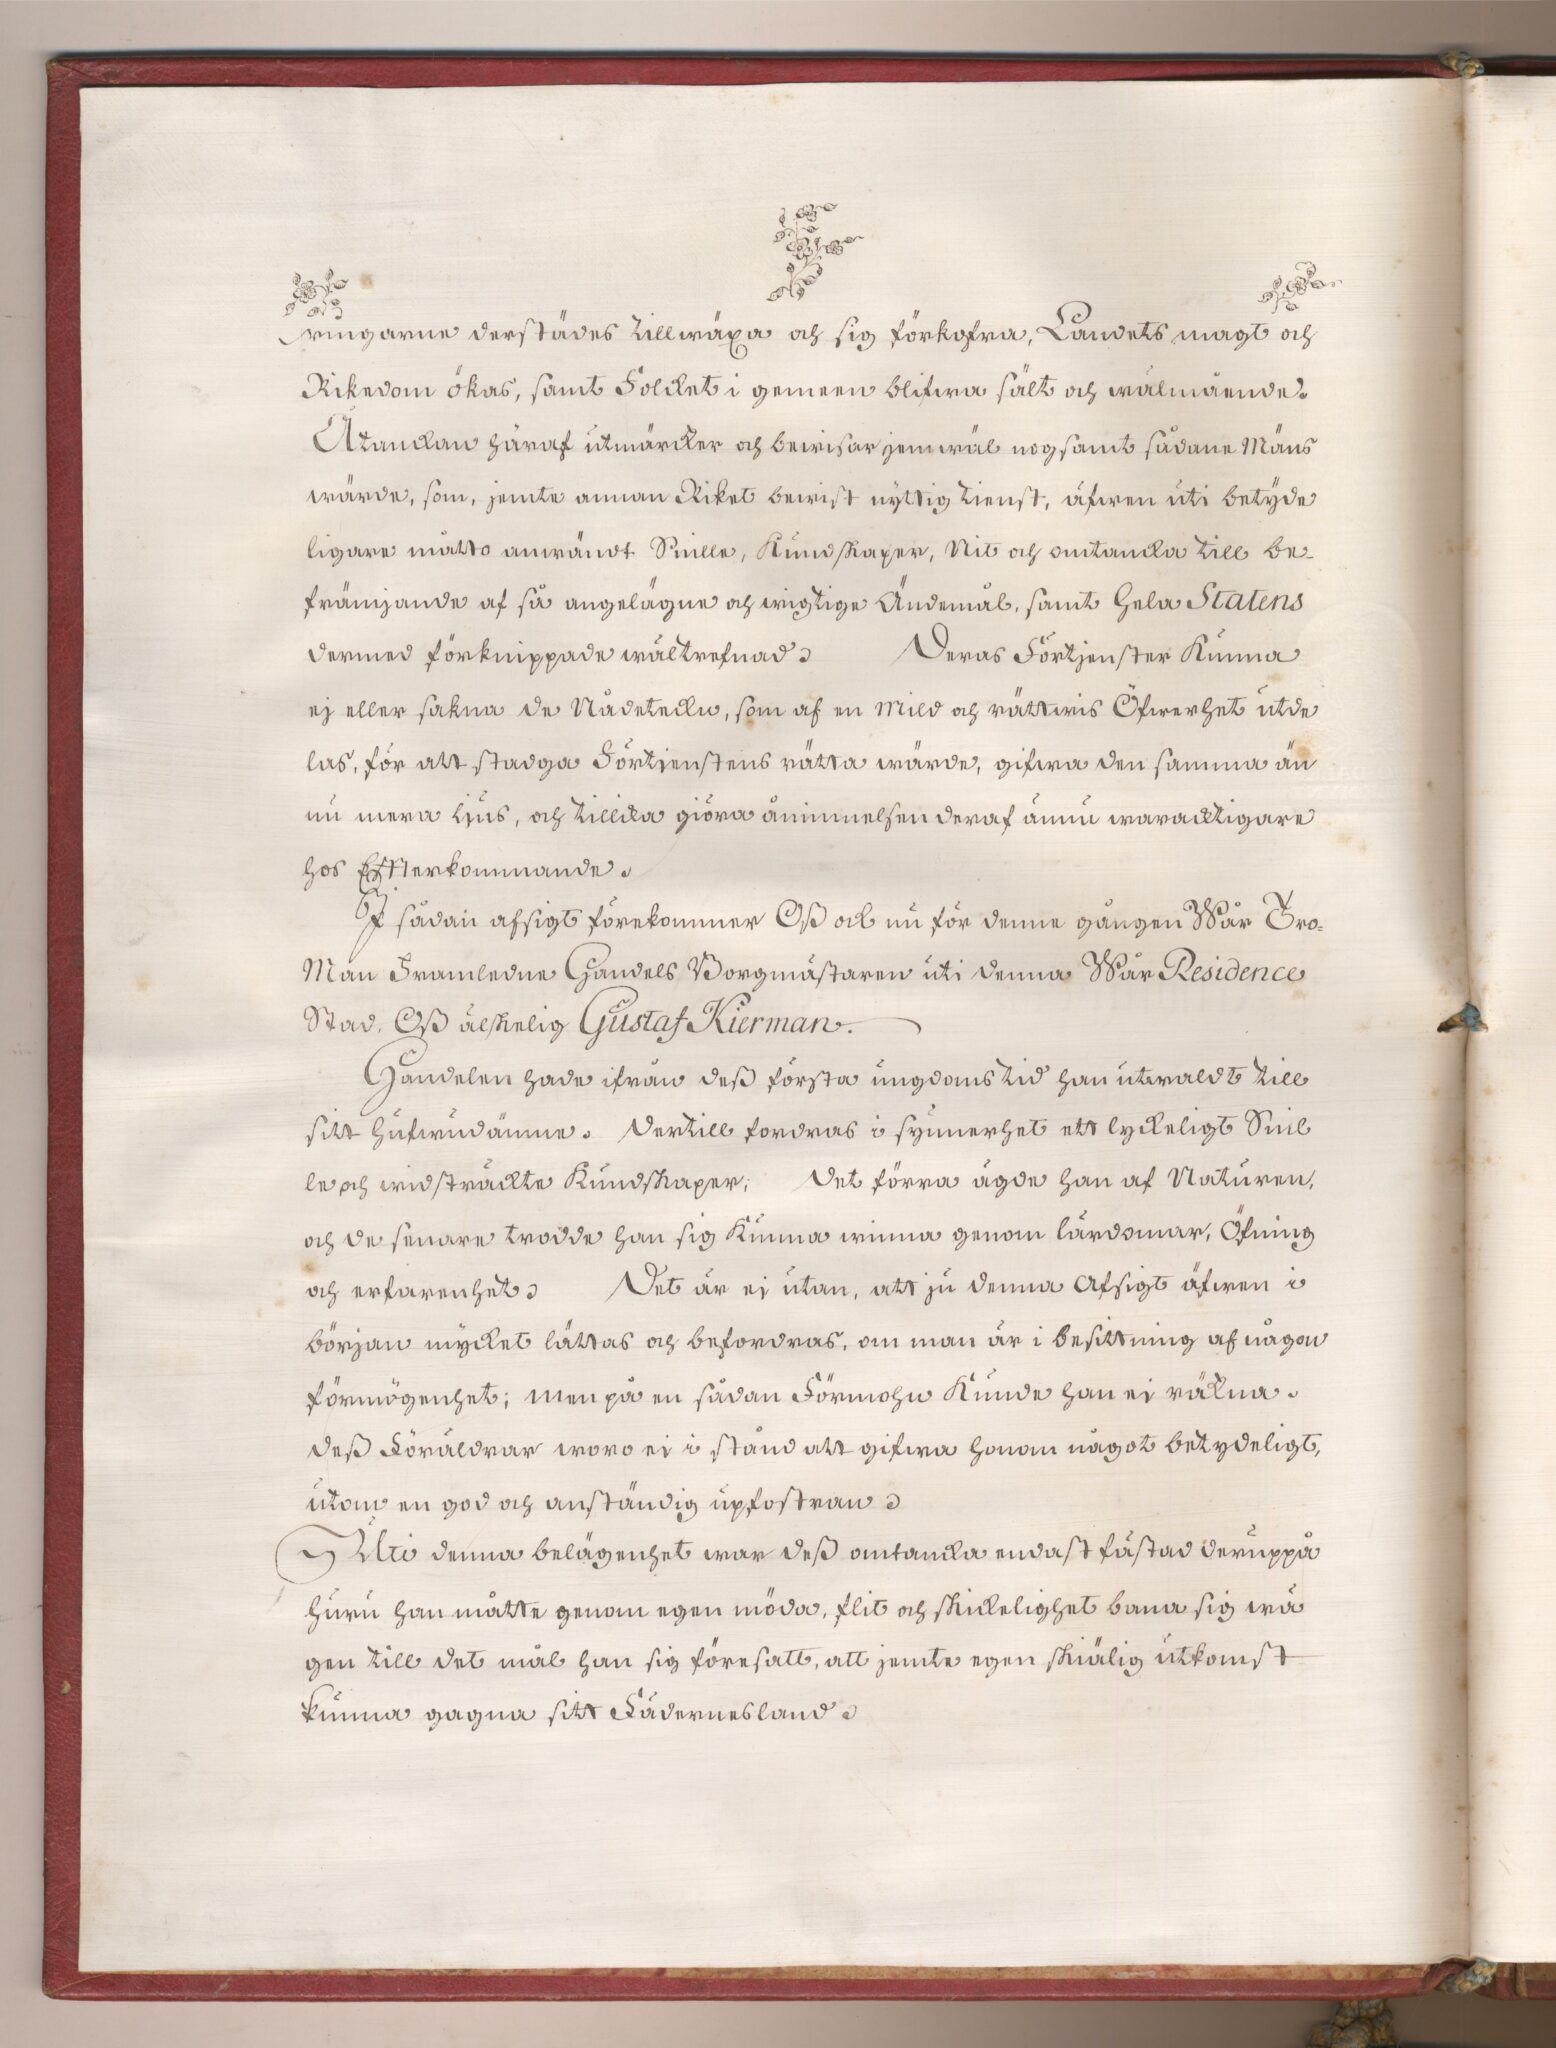 ringarne derstädes tillwäxa och sig förkofra, Landets magt och
Rikedom ökas, samt Folcket i gemeen blifwa sält och wälmående.
Åtanckan häraf utmärcker och bewisar jemwäl nogsamt sådane Mäns
wärde, som, jemte annan Riket bewist nyttig tienst, äfwen uti betyde
ligare måtto anwändt Snille, Kundskaper, Nit och omtancka till be-
främjande af så angelägne och wigtige Ändemål, samt hela Statens
dermed förknippade wältrefnad.   Deras Förtjenster kunna
ej eller sakna de Nådeteckn, som af en Mild och rättwis Öfwerhet utde
las, för att stadga Förtjenstens rätta wärde, gifwa den samma än
nu mera ljus, och tillicka giöra åminnelsen deraf ännu waracktigare
hos Effterkommande.
I sådan afsigt förekommer Oß ock nu för denne gången Wår Tro=
Man Framledne Handels Borgmästaren uti denna Wår Residence
Stad, Oß älskelig Gustaf Kierman.
Handelen hade ifrån deß första ungdoms tid han utwaldt till
sitt hufwudämne. Dertill fordras i synnerhet ett lyckeligt Snil
le och widsträckte Kundskaper; Det förra ägde han af Naturen,
och de senare trodde han sig kunna winna genom lärdomar, Öfning
och erfarenhet.   Det är ej utan, att ju denna Afsigt äfwen i
början mycket lättas och befordras, om man är i besittning af någon
förmögenhet; men på en sådan Förmohn kunde han ej räkna.
Deß Föräldrar woro ej i stånd att gifwa honom något betydeligt,
utom en god och anständig upfostran.
Uti denna belägenhet war deß omtancka endast fästad deruppå
huru han måtte genom egen möda, flit och skickelighet bana sig wä
gen till det mål han sig föresatt, att jemte egen skiälig utkomst
kunna gagna sitt Fädernesland.